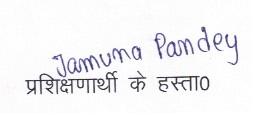 Jamuna Pandey
प्रशिक्षणार्थी के हस्ता0